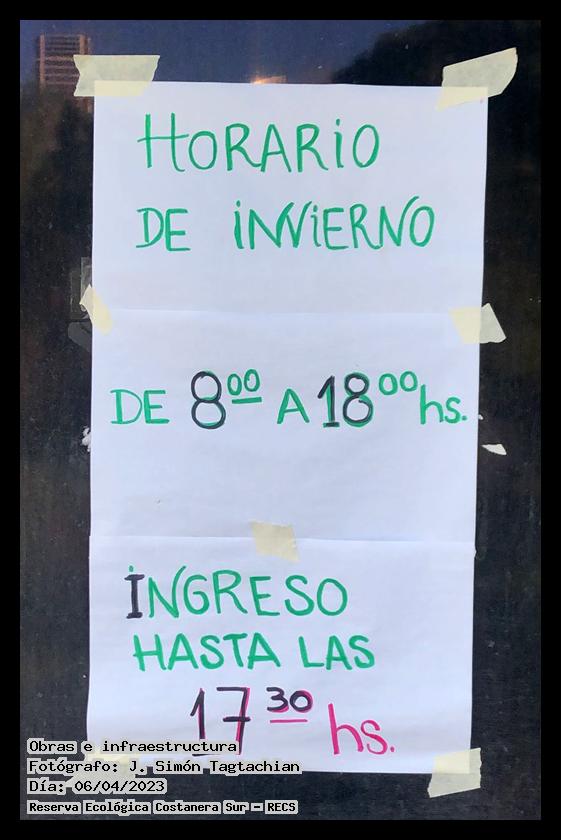 HORARIO
DE INVIERNO
DE 8⁰⁰ A 18⁰⁰ hs.
INGRESO
HASTA LAS
17³⁰ hs.
Obras e infraestructura
Fotógrafo: J. Simón Tagtachian
Día: 06/04/2023
Reserva Ecológica Costanera Sur - RECS